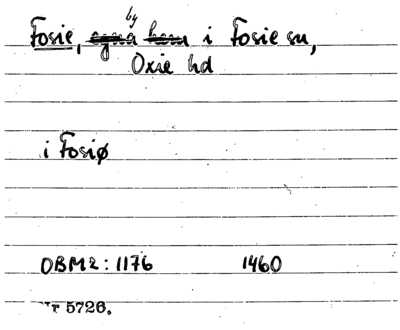 by
Fosie, egna hem i Fosie sn,
Oxie hd
i Fosiø
OBM2: 1176 1460
Nr 5726.